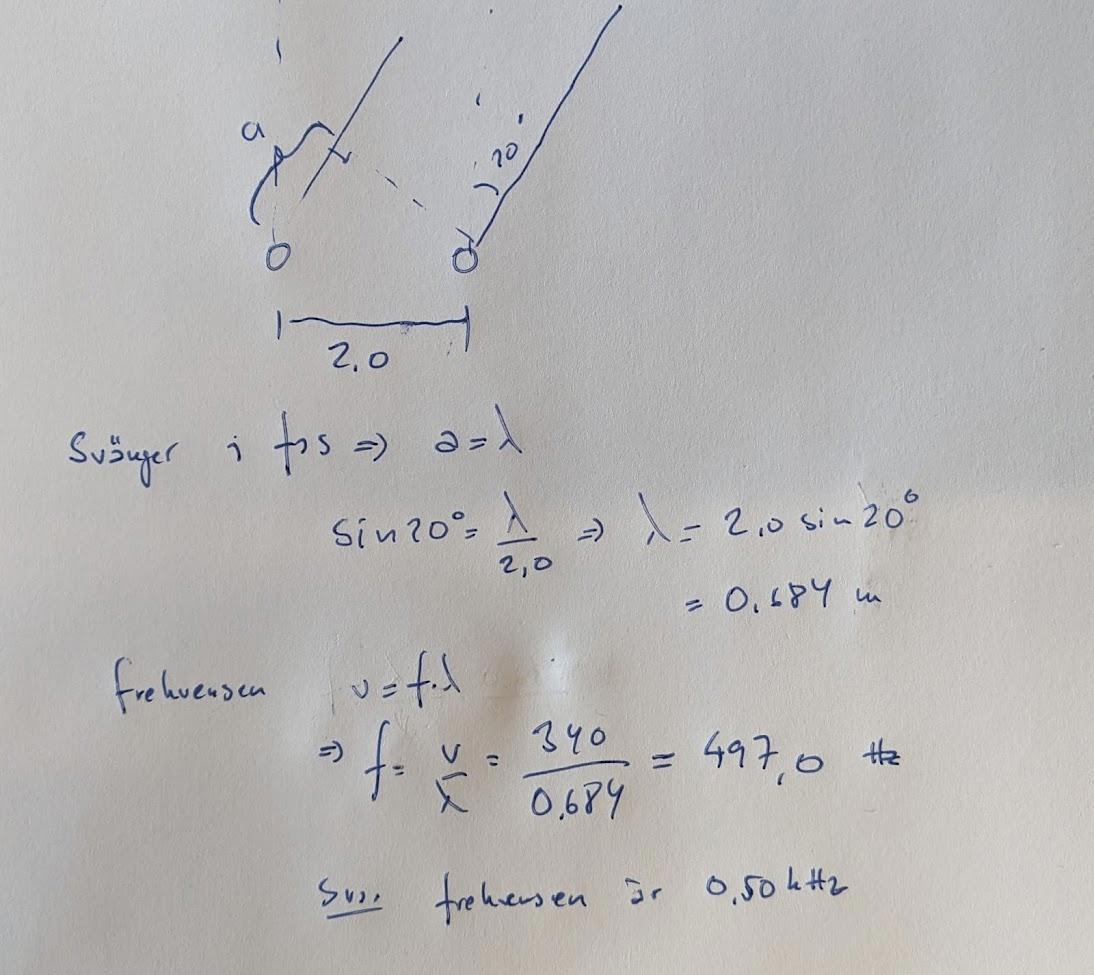 a
20°
2,0
Svänger i fas => a = λ
sin 20° = λ/2,0 => λ = 2,0 sin 20°
= 0,684 m
frekvensen v = f·λ
=> f = v/λ = 340/0,684 = 497,0 Hz
Svar: frekvensen är 0,50 kHz